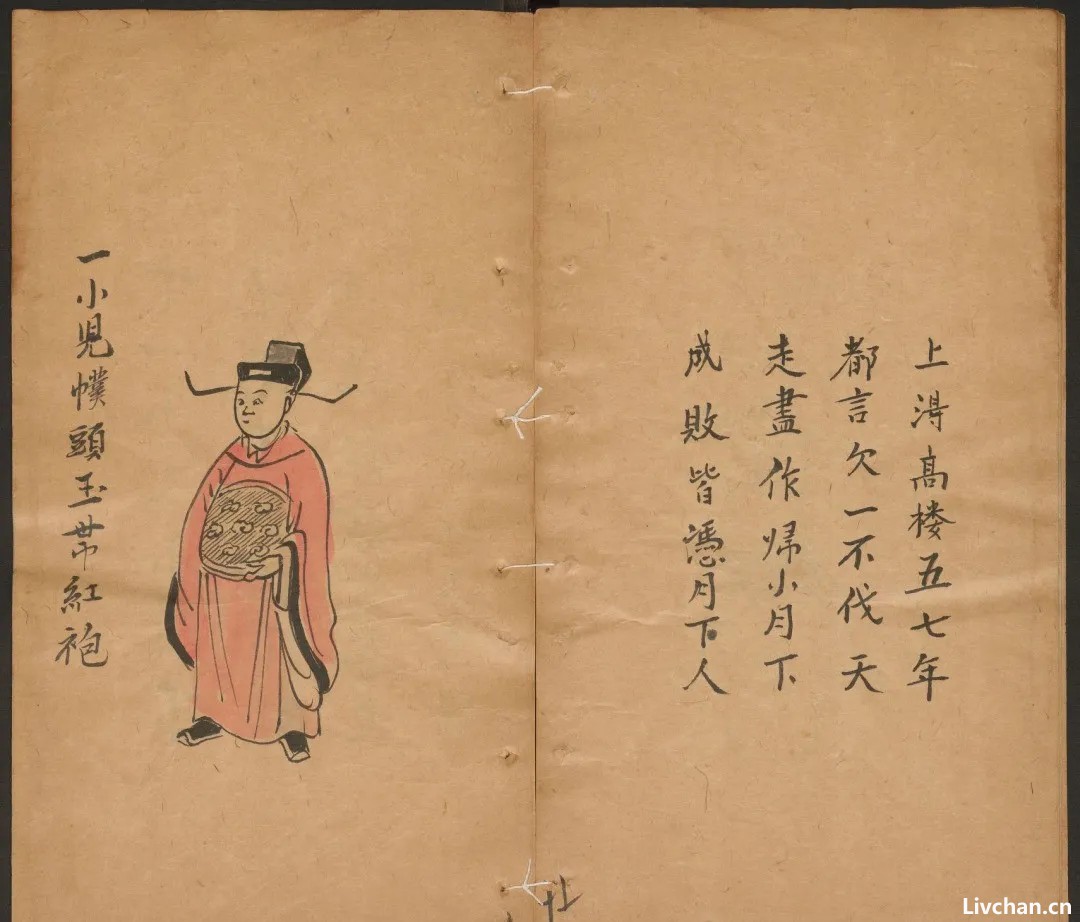 上淂高楼五七年
都言欠一不伐天
走盡作歸小月下
成敗皆憑月下人
一小兒幞頭玉帯紅袍
Livchan.cn